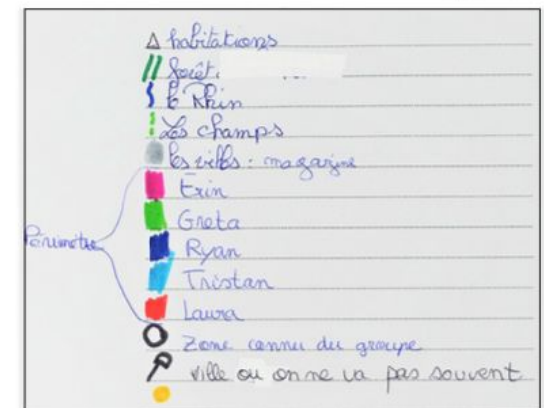 habitations
forêt
le Rhin
Les champs
les villes : magazine
Erin
Greta
Périmètre
Ryan
Tristan
Laura
Zone connu du groupe
ville ou on ne va pas souvent